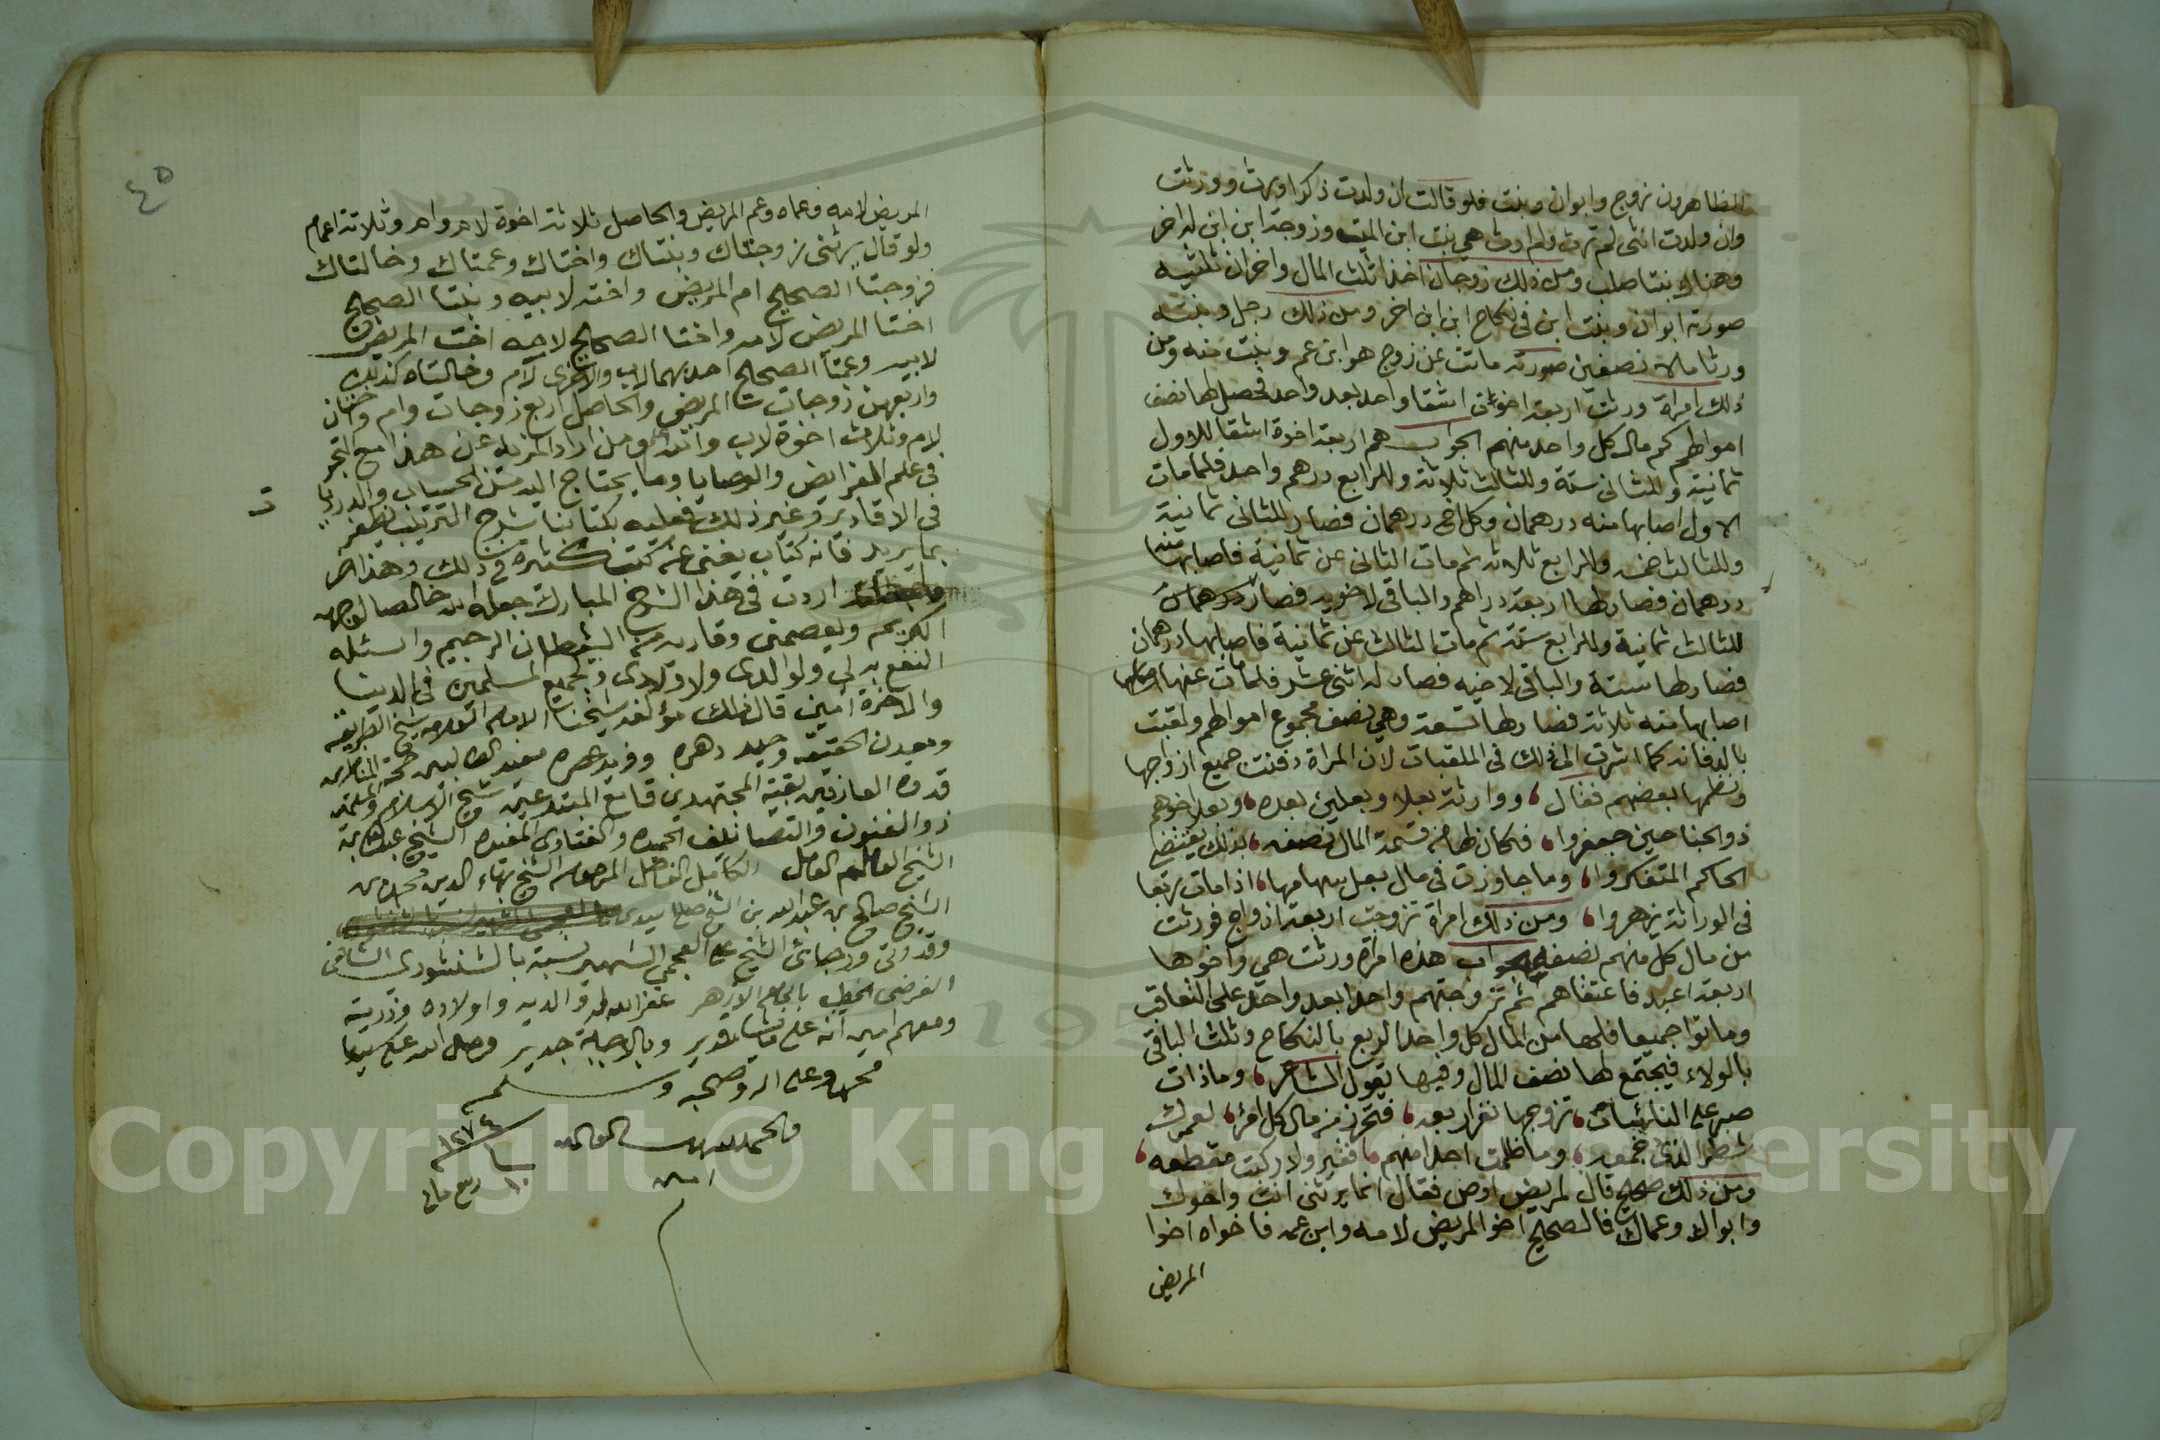 الظاهرون زوج وابوان وبنت فلو قالت ان ولدت ذكرا ورث وورثت
وان ولدت انثى لم ترث ولم ارث هي بنت ابن الميت وزوجة ابن ابن له اخر
وهناك بنتا صلب ومن ذلك زوجان اخذا ثلث المال واخران ثلثيه
صورته ابوان وبنت ابن في نكاح ابن ابن اخر ومن ذلك رجل وبنته
ورثا مالا نصفين صورته ماتت عن زوج هو ابن عم وبنت منه ومن
ذلك امراة ورثت اربعة اخوة اشقا واحد بعد واحد فحصل لها نصف
اموالهم كم مال كل واحد منهم الجواب هم اربعة اخوة اشقا للاول
ثمانية وللثاني ستة وللثالث ثلاثة وللرابع درهم واحد فلما مات
الاول اصابها منه درهمان وكل اخ درهمان فصار للثاني ثمانية
وللثالث خمسة وللرابع ثلاثة ثم مات الثاني عن ثمانية فاصابها منه
درهمان فصار لها اربعة دراهم والباقي لاخويه فصار
للثالث ثمانية وللرابع ستة ثم مات الثالث عن ثمانية فاصابها درهمان
فصار لها ستة والباقي لاخيه فصار له اثنى عشر فلما مات عنها
اصابها منه ثلاثة فصار لها تسعة وهي نصف مجموع اموالهم ولقبت
بالدفانة كما اشرت الى ذلك في الملقبات لان المراة دفنت جميع ازواجها
ونظمها بعضهم فقال ، ووارثة بعلا وبعلين بعده ، وبعلا اخوهم
ذو الجناحين جعفروا ، فكان لها من قسمة المال نصفه ، بذلك يقضي
الحاكم المتفكروا ، وما جاوزت في مال بعل سهامها ، اذا مات ربعا
في الوراثة يزهروا ، ومن ذلك امراة تزوجت اربعة ازواج فورثت
من مال كل منهم نصفه الجواب هذه امراة ورثت هي واخوها
اربعة اعبد فاعتقاهم ثم تزوجتهم واحدا بعد واحد على التعاقب
وماتوا جميعا فلها من المال كل واحد الربع بالنكاح وثلث الباقي
بالولاء فيجتمع لها نصف المال وفيها يقول الشاعر ، وما ذات
صبر على النائبات ، تزوجها نفر اربعة ، فتحرز من مال كل امرء ، لعمرك
شطر الذي جمعه ، وما ظلمت احدا منهم ، نقيرولا ركبت مقطعه ،
ومن ذلك صحيح قال لمريض اوص فقال انما يرثني انت واخوك
وابواك وعماك فالصحيح اخو المريض لامه وابن عمه فاخواه اخوا
المريض
٤٥
المريض لامه وعماه وعم المريض والحاصل ثلاثة اخوة لام وام وثلاثة اعمام
ولو قال يرثني زوجتاك وبنتاك واختاك وعمتاك وخالتاك
فزوجتا الصحيح ام المريض واخته لابيه وبنتا الصحيح
اختا المريض لامه واختا الصحيح لابيه اخت المريض
لابيه وعمتا الصحيح احديهما لاب والاخرى لام وخالتاه كذلك
واربعهن زوجات المريض والحاصل اربع زوجات وام واختان
لام وثلاث اخوة لاب ومن اراد المزيد عن هذا مع التبحر
في علم الفرايض والوصايا وما يحتاج اليه من الحساب والدور
في الاقارير وغير ذلك فعليه بكتابنا شرح الترتيب يظفر
بما يريد فانه كتاب يغني عن كتب كثيرة في ذلك وهذا اخر
اردت في هذا الشرح المبارك جعله الله خالصا لوجهه
الكريم ويعصمني وقاريه من الشيطان الرجيم واسئله
النفع به لي ولوالدي ولاولادي ولجميع المسلمين في الدنيا
والاخرة امين قال ذلك مؤلفه شيخنا الامام العلامه شيخ الطريقة
ومعدن الحقيقة وحيد دهره وفريد عصره مفيد الطالبين
قدوة العارفين بقية المجتهدين قامع المبتدعين شيخ الاسلام
ذو الفنون والتصانيف الحميده والفتاوى المفيده الشيخ عبدالله بن
الشيخ العالم العامل الكامل الفاضل المرحوم الشيخ بهاء الدين محمد بن
الشيخ صالح بن عبدالله بن الشيخ
وقدوتي الشيخ علي العجمي الشهير نسبة بالشنشوري الشافعي
الفرضي الخطيب بالجامع الازهر غفر الله له ولوالديه واولاده وذريته
ومعهم امين انه على ما يشاء قدير وبالاجابة جدير وصلى الله على سيدنا
محمد وعلى اله وصحبه وسلم
والحمد لله رب العالمين ١٢٧٤
امين